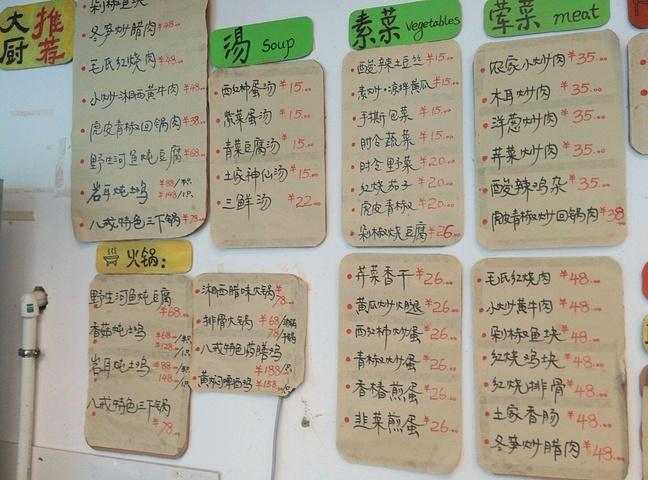 大厨
推荐
剁椒鱼块
冬笋炒腊肉 ¥48.00
毛氏红烧肉 ¥48.00
小炒湘西黄牛肉 ¥48.00
虎皮青椒回锅肉 ¥38.00
野生河鱼炖豆腐 ¥68.00
岩耳炖土鸡 ¥88/半只 ¥148/只
八戒特色三下锅 ¥78.00
汤 Soup
西红柿蛋汤 ¥15.00
紫菜蛋汤 ¥15.00
青菜豆腐汤 ¥15.00
土家神仙汤 ¥15.00
三鲜汤 ¥22.00
素菜 Vegetables
酸辣土豆丝 ¥15.00
素炒·凉拌黄瓜 ¥15.00
手撕包菜 ¥15.00
时令蔬菜 ¥15.00
时令野菜 ¥20.00
红烧茄子 ¥20.00
虎皮青椒 ¥20.00
剁椒烧豆腐 ¥26.00
荤菜 meat
农家小炒肉 ¥35.00
木耳炒肉 ¥35.00
洋葱炒肉 ¥35.00
荠菜炒肉 ¥35.00
酸辣鸡杂 ¥35.00
虎皮青椒炒回锅肉 ¥38
火锅:
野生河鱼炖豆腐 ¥68.00
香菇炖土鸡 ¥68/半只 ¥128/只
岩耳炖土鸡 ¥88/半只 148/只
八戒特色三下锅 ¥78.00
湘西腊味火锅 ¥78.00
排骨火锅 ¥68/ 78/干锅
八戒特色 ¥188/只
黄焖 ¥158/只
荠菜香干 ¥26.00
黄瓜炒火腿 ¥26.00
西红柿炒蛋 ¥26.00
青椒炒蛋 ¥26.00
香椿煎蛋 ¥26.00
韭菜煎蛋 ¥26.00
毛氏红烧肉 ¥48.00
小炒黄牛肉 ¥48.00
剁椒鱼块 ¥48.00
红烧鸡块 ¥48.00
红烧排骨 ¥48.00
土家香肠 ¥48.00
冬笋炒腊肉 ¥48.00